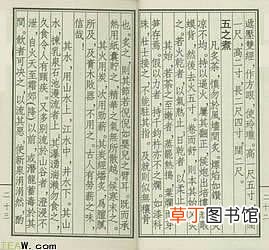 遞壓雙經，作方眼，使玲瓏。高一尺五寸，底闊一
尺、高二寸，長二尺四寸，闊二尺。
五之煮
凡炙茶，慎勿於風燼間炙，熛焰如鑽，使炎
涼不均。持以逼火，屢其翻正，候炮出培塿，狀蝦
蟆背，然後去火五寸。卷而舒，則本其始又炙
之。若火乾者，以氣熟止；日乾者，以柔止。
其始，若茶之至嫩者，蒸罷熱搗，葉爛而牙
筍存焉。假以力者，持千鈞杵亦不之爛。如漆科
珠，壯士接之，不能駐其指。及就則似無穰骨
也。炙之，則其節若倪倪如嬰兒之臂耳。既而承
熱用紙囊貯之，精華之氣無所散越，候寒末之。
其火用炭，次用勁薪。其炭曾經燔炙，爲膻膩
所及，及膏木敗器，不用之。古人有勞薪之味，
信哉！
其水，用山水上，江水中，井水下。其山
水，揀乳泉石池慢流者上；其瀑湧湍漱，勿食之。
久食令人有頸疾。又多別流於山谷者，澄浸不
洩，自火天至霜郊(降)以前，或潛龍蓄毒於其
間，飲者可決之，以流其惡，使新泉涓涓然，酌
二十三
TEAW.com